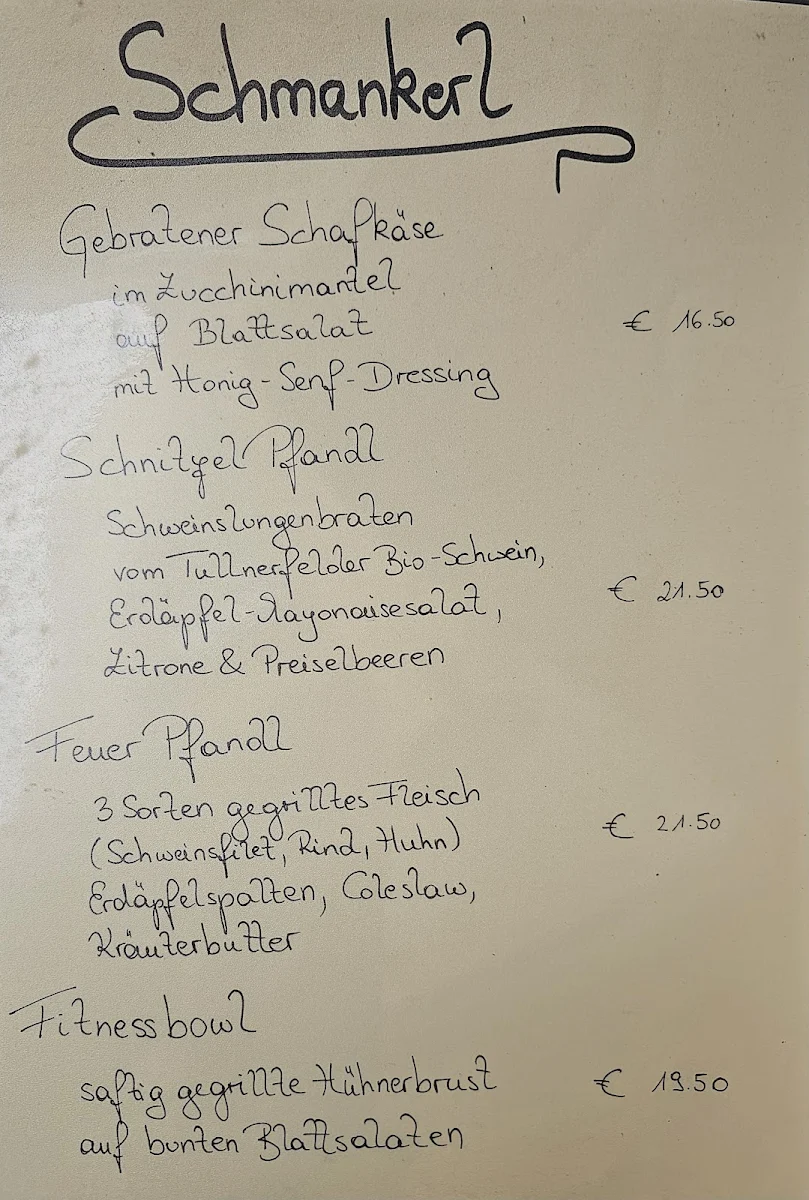 Schmankerl
Gebratener Schafkäse
im Zucchinimantel
auf Blattsalat € 16.50
mit Honig-Senf-Dressing
Schnitzel Pfandl
Schweinslungenbraten
vom Tullnerfelder Bio-Schwein,
Erdäpfel-Mayonaisesalat, € 21.50
Zitrone & Preiselbeeren
Feuer Pfandl
3 Sorten gegrilltes Fleisch
(Schweinsfilet, Rind, Huhn) € 21.50
Erdäpfelspalten, Coleslaw,
Kräuterbutter
Fitnessbowl
saftig gegrillte Hühnerbrust € 19.50
auf bunten Blattsalaten